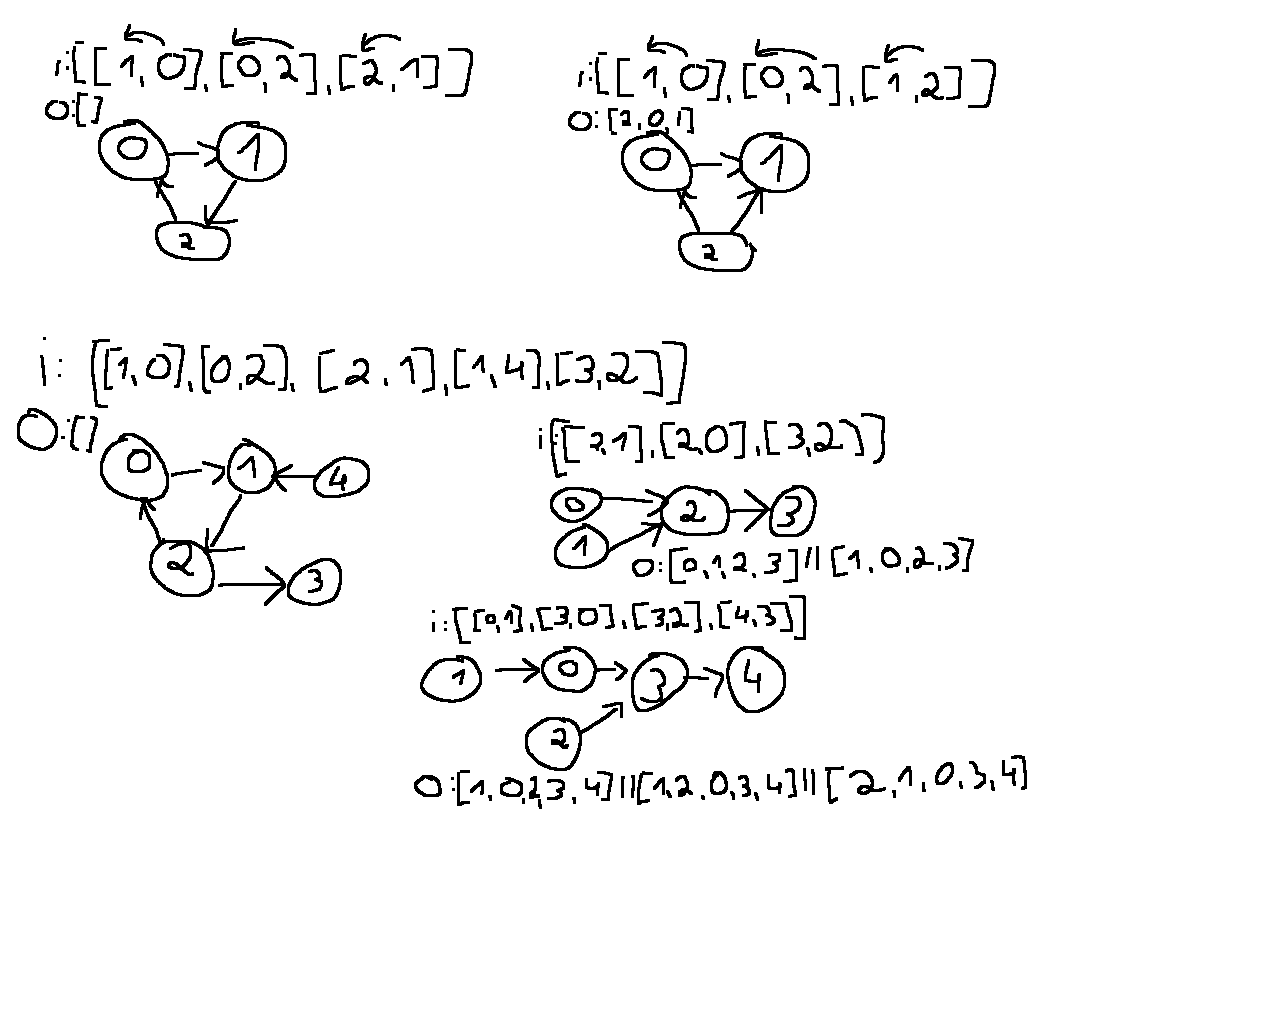 i:[[1,0],[0,2],[2,1]]
O:[]
0 1
2
i:[[1,0],[0,2],[1,2]]
O:[2,0,1]
0 1
2
i: [[1,0],[0,2],[2,1],[1,4],[3,2]]
O:[]
0 1 4
2 3
i:[[2,1],[2,0],[3,2]]
0 2 3
1
O:[0,1,2,3]||[1,0,2,3]
i:[[0,1],[3,0],[3,2],[4,3]]
1 0 3 4
2
O:[1,0,2,3,4]||[1,2,0,3,4]||[2,1,0,3,4]